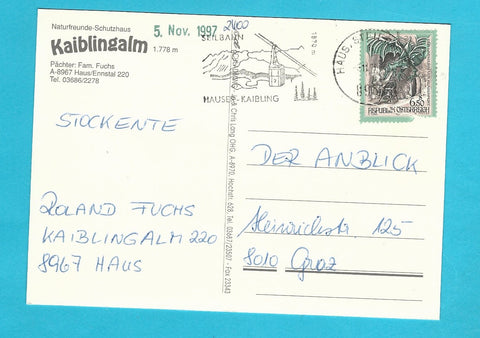 Naturfreunde-Schutzhaus
Kaiblingalm 1.778 m
Pächter: Fam. Fuchs
A-8967 Haus/Ennstal 220
Tel. 03686/2278
5. Nov. 1997
2400
SEILBAHN
1870 m
HAUSER-KAIBLING
HAUS
6.50
REPUBLIK ÖSTERREICH
Chris Lang OHG, A-8970, Hochstr. 628, Tel. 03687/23507 - Fax 23343
STOCKENTE
ROLAND FUCHS
KAIBLINGALM 220
8967 HAUS
DER ANBLICK
Heinrichstr. 125
8010 Graz